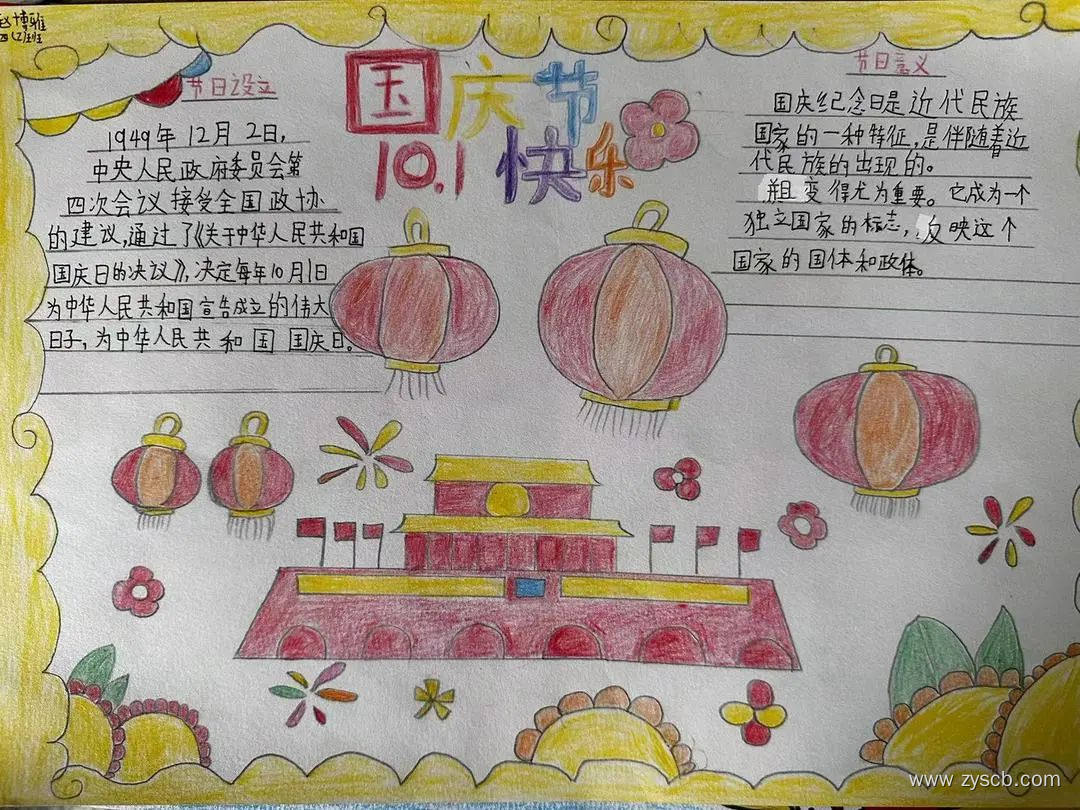 赵博雅
四(2)班
节日设立
1949年12月2日,
中央人民政府委员会第
四次会议接受全国政协
的建议,通过了《关于中华人民共和国
国庆日的决议》,决定每年10月1日
为中华人民共和国宣告成立的伟大
日子,为中华人民共和国国庆日。
国庆节
10.1快乐
节日意义
国庆纪念日是近代民族
国家的一种特征,是伴随着近
代民族的出现的。
变得尤为重要。它成为一个
独立国家的标志,反映这个
国家的国体和政体。
www.zyscb.com